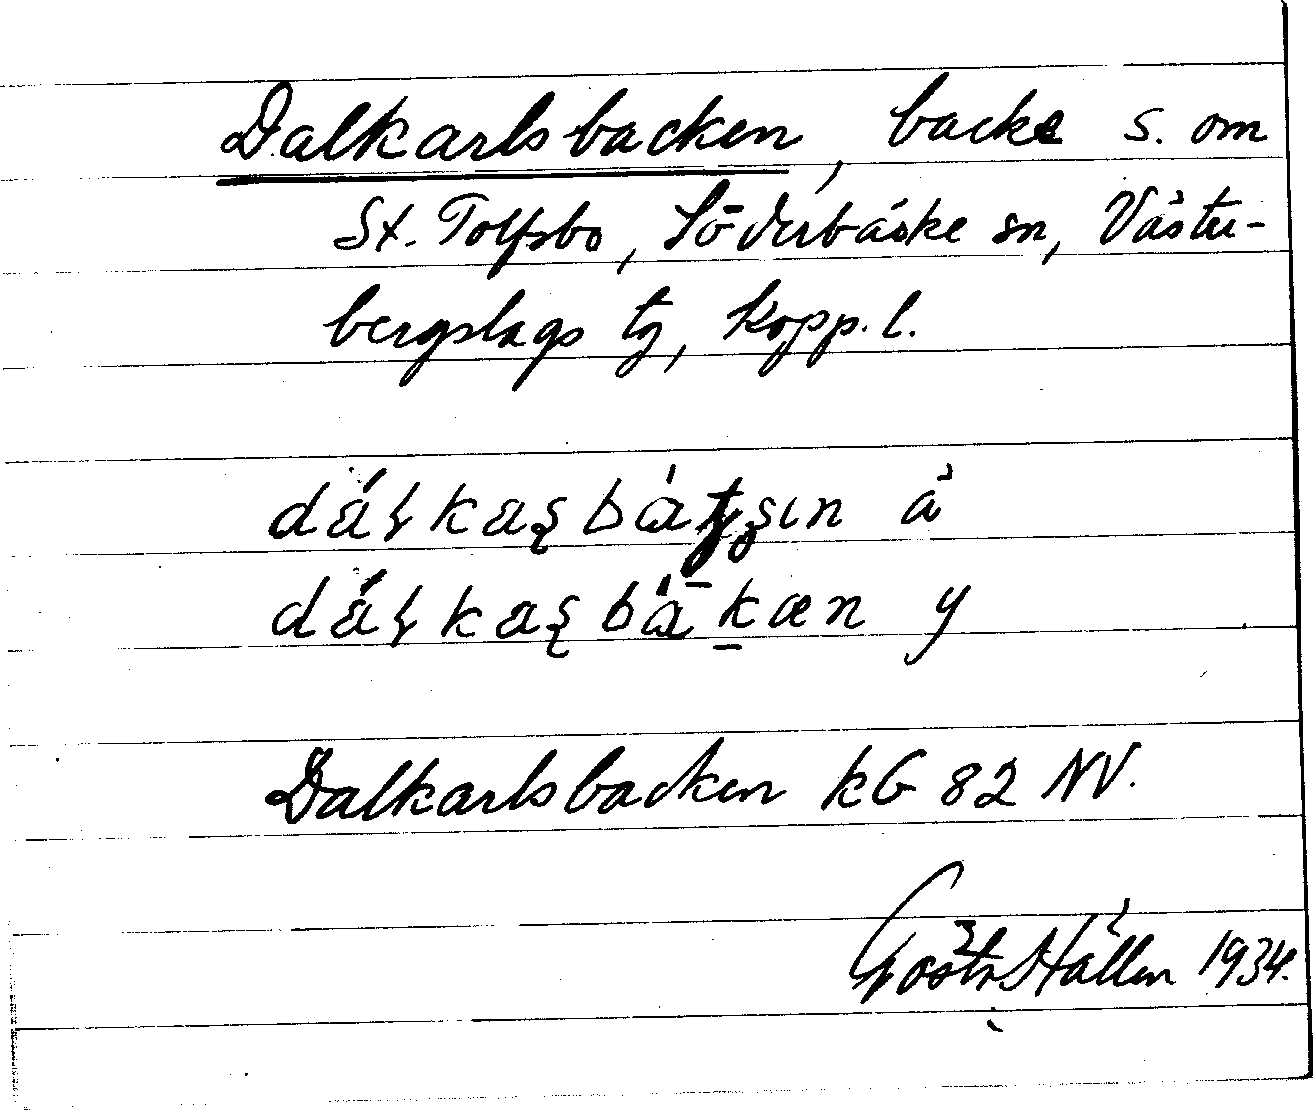 Dalkarlsbacken, backe s. om
St. Tolfsbo, Söderbärke sn, Väster-
bergslags tg, Kopp. l.
å
y
Dalkarlsbacken kG 82 NV.
Gösta Hallén 1934.